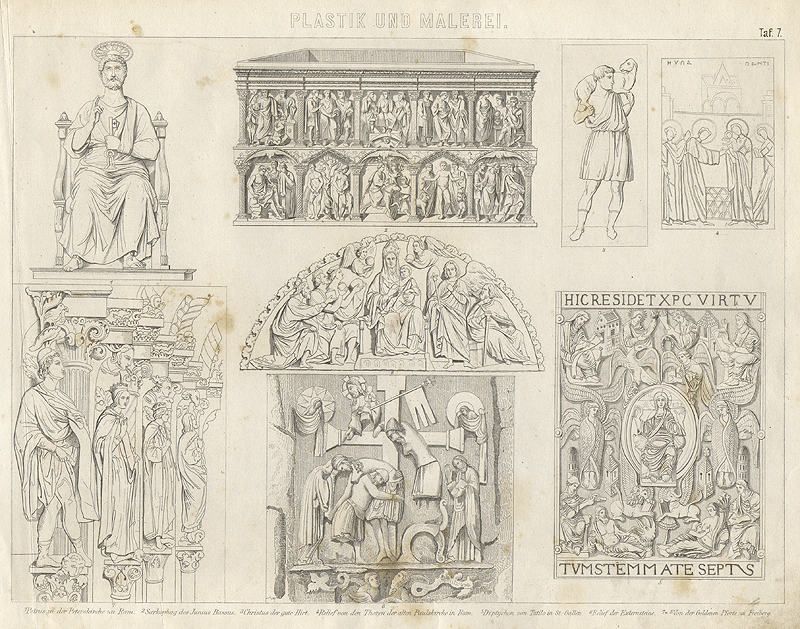 PLASTIK UND MALEREI.
Taf. 7.
2
3
4
HIC RESIDET XPC VIRTV
TVM STEMMATE SEPTVS
5
6
¹Petrus in der Peterskirche zu Rom. ²Sarkophag des Junius Bassus. ³Christus der gute Hirt. ⁴Relief von den Thüren der alten Paulskirche in Rom. ⁵Diptychon von Tutilo in St. Gallen. ⁶Relief der Externsteine. ⁷ᵘ·⁸Von der Goldenen Pforte zu Freiberg.